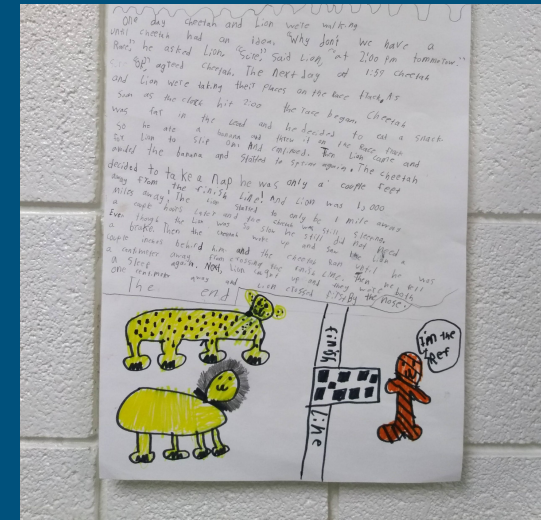 One day cheetah and Lion were walking
until cheetah had an idea. "Why don't we have a
Race" he asked Lion. "Sure," said Lion, "at 2:00 pm tommorow."
agreed cheetah. The next day at 1:59 cheetah
and Lion were taking their places on the Race track. As
Soon as the clock hit 2:00 the race began. Cheetah
was far in the lead and he decided to eat a snack
So he ate a banana and threw it on the Race
for Lion to slip on. And continued. Lion came and
the banana and started to again. The cheetah
decided to take a nap he was only a couple feet
away from the finish Line! And Lion was 1,000
miles away! The Lion started to only be 1 mile away.
a couple hours later and the cheetah was still sleeping
Even though the Lion was so slow he still did not need
a brake. Then the cheetah woke up and saw the Lion a
couple inches behind him and the cheetah ran until he was
a centimeter away from crossing the finish Line. Then he fell
a sleep again. Next, Lion caught up and they were both
one centimeter away and Lion crossed first By the nose.
The end
finish
Line
I'm the
Ref